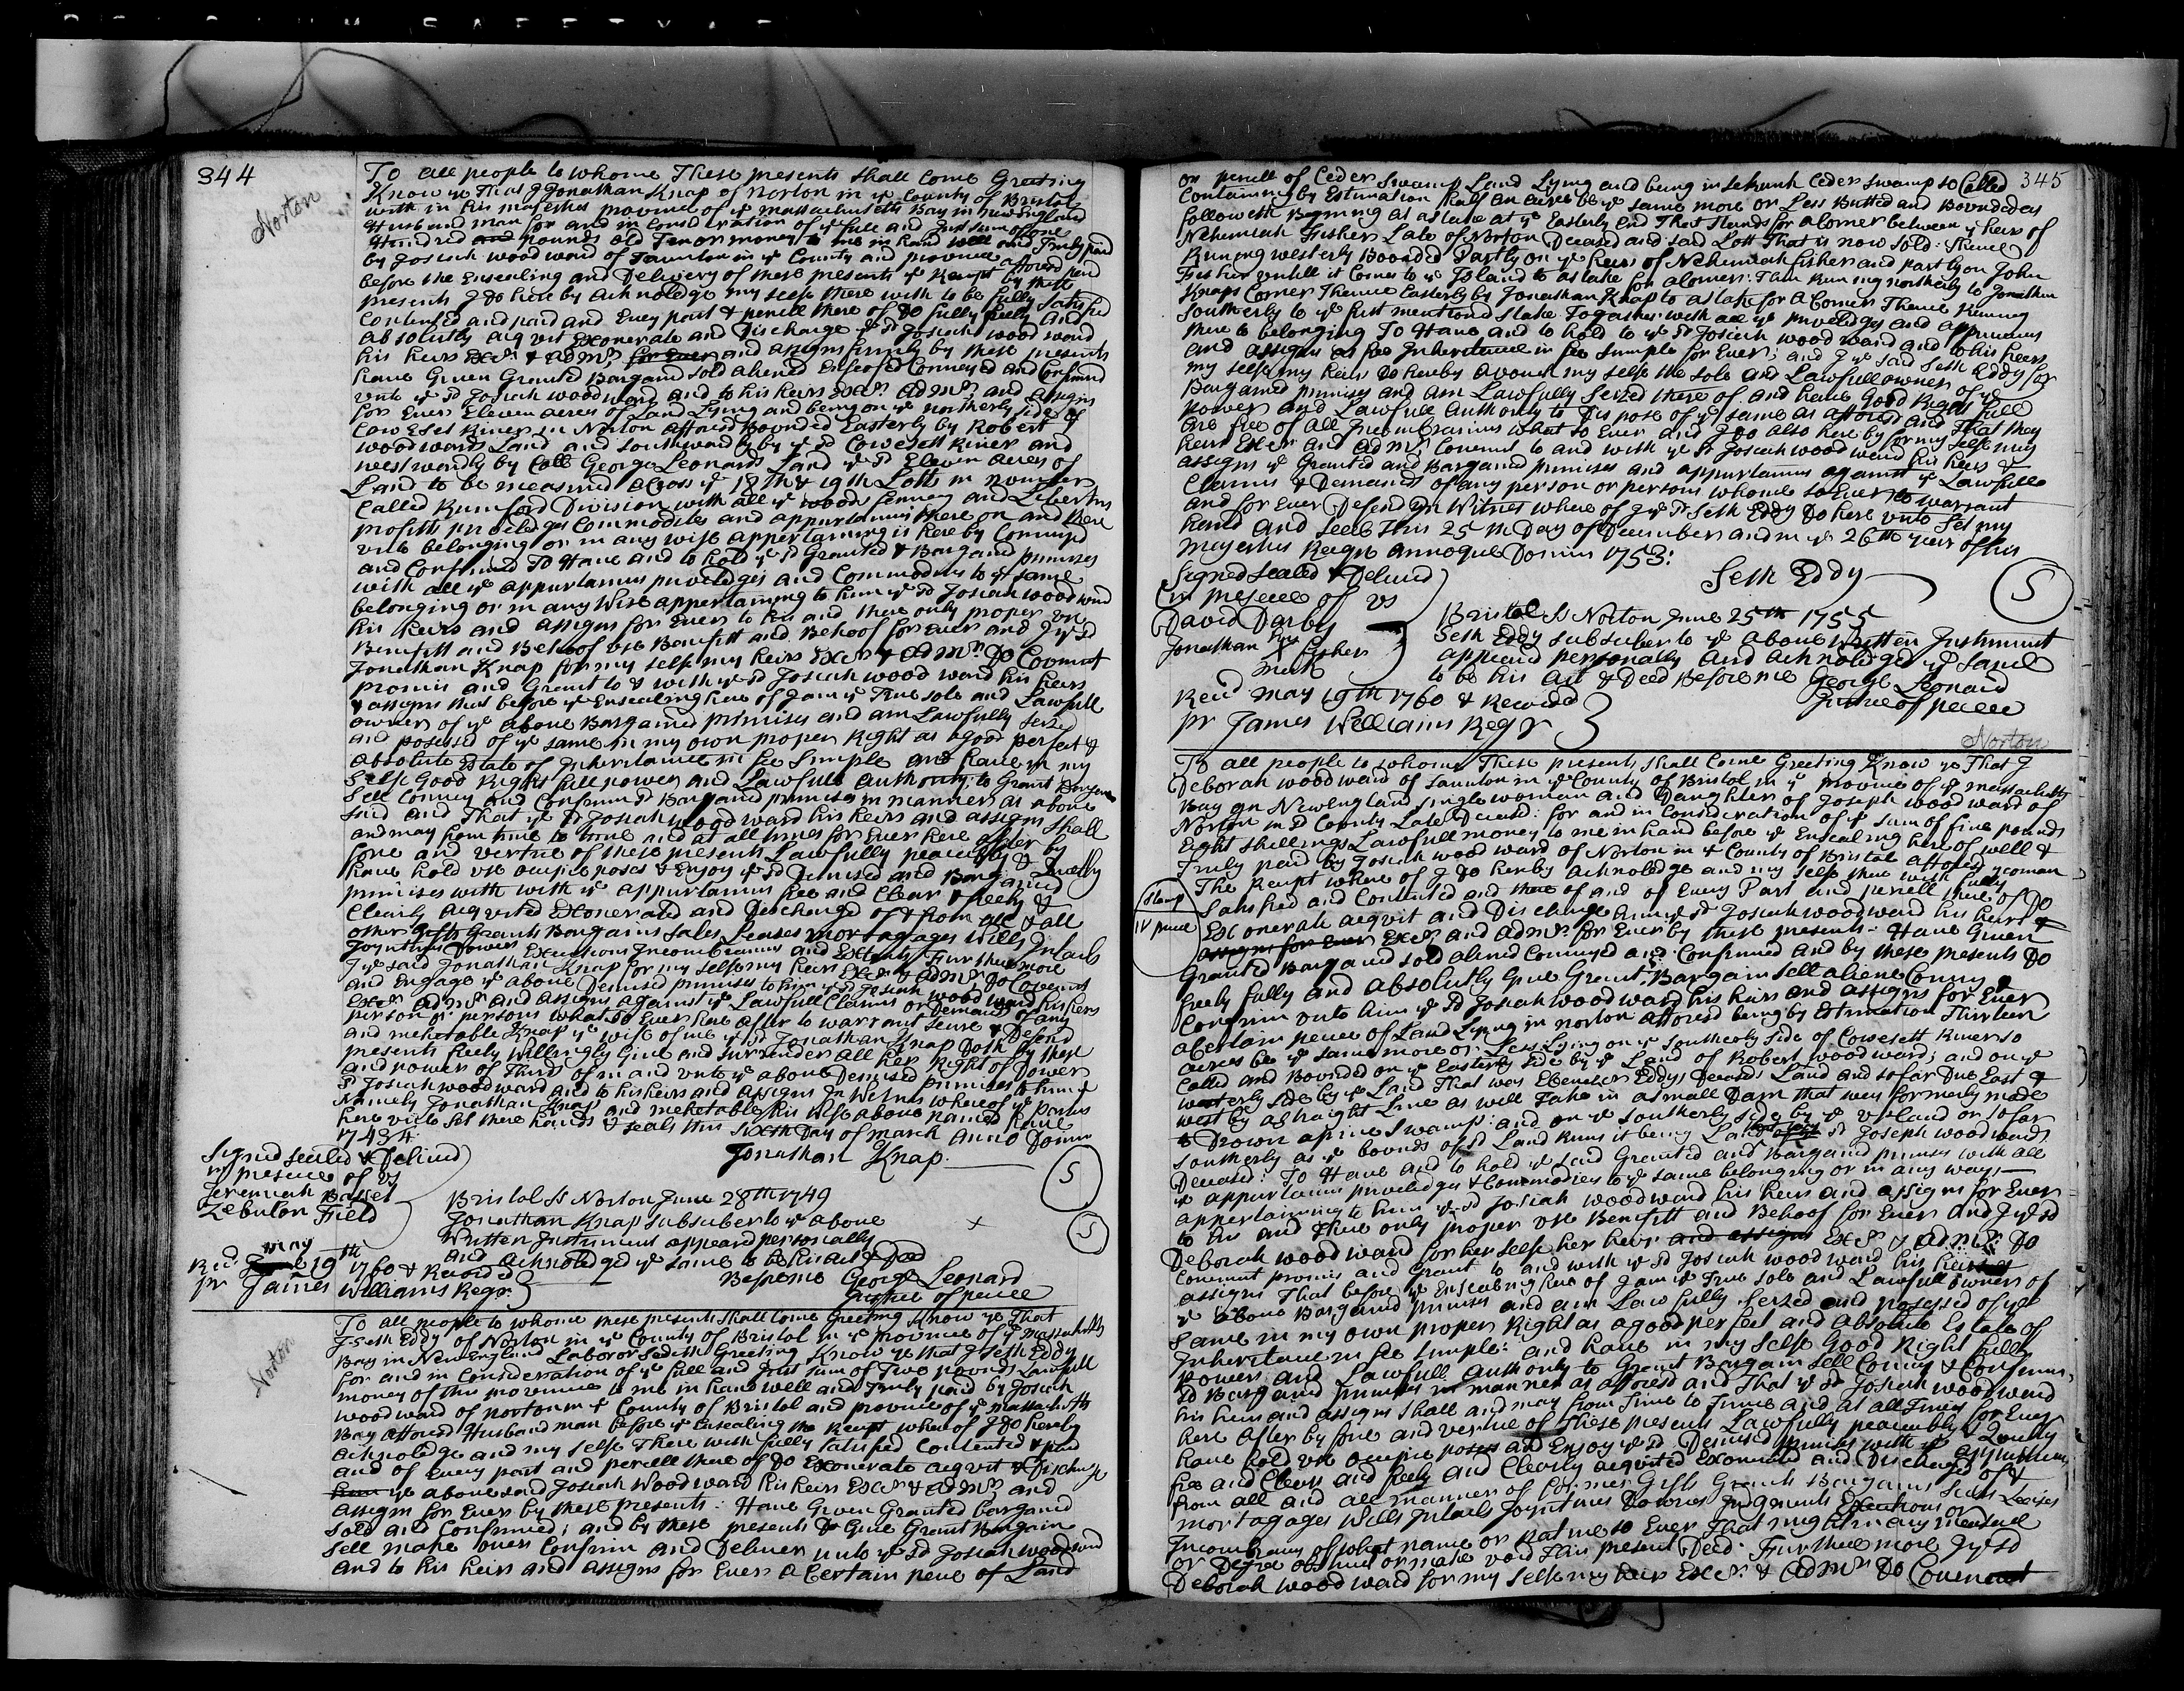 344
Norton
To all people to whome These presents shall Come Greeting
Know ye That I Jonathan Knap of Norton in ye County of Bristol
with in his majesties province of ye Massachusetts Bay in new England
Husband man for and in Consideration of ye full and Just sum of one
Hundred and pounds old Tenor money to me in hand well and Truly paid
by Josiah wood ward of Taunton in ye County and province afforesd
before the Ensealing and Delivery of these presents ye Receipt
presents I do here by Acknoledge my selfe there with to be fully satisfied
Contented and paid and Every part & percell there of Do fully freely and
absolutly acqvit Exonerate and Discharge ye sd Josiah wood ward
his heirs Excrs & Admrs for Ever and assigns firmly by these presents
have Given Granted Bargaind sold aliened Enfeofed Conveyed and Confirmd
vnto ye sd Josiah wood ward and to his heirs Excrs Admrs and assigns
for Ever Eleven acres of Land Lying and being on ye northerly side of
Cowesset River in Norton afforesd Bounded Easterly by Robert
woodwards Land and southwardly by ye sd Cowesett River and
westwardly by Coll George Leonards Land ye sd Eleven acres of
Land to be measured across ye 18th & 19th Lotts in number
Called Rumford Division with all ye woods fences and Liberties
profits priveledges Commodities and appurtanances there on and there
vnto belonging or in any wise appertaining is here by Conveyed
and Confirmed To Have and to hold ye sd Granted & Bargaind premises
with all ye appurtanances priveledges and Commodities to ye same
belonging or in any wise appertaining to him ye sd Josiah wood ward
his heirs and assigns for Ever to his and there only proper vse
Benifitt and Behoof vse Benifitt and Behoof for Ever and I ye sd
Jonathan Knap for my self my heirs Excrs & Admrs Do Covenant
promis and Grant to & with ye sd Josiah wood ward his heirs
& assigns that before ye Ensealing here of I am ye True sole and Lawfull
owner of ye above Bargained premises and am Lawfully seized
and posessed of ye same in my own proper Right as a good perfect &
absolute Estate of Inheritance in fee simple and have in my
selfe Good Right full power and Lawfull Authority to Grant Bargain
sell Convey and Confirm sd Bargained premises in manner as above
said and That ye sd Josiah wood ward his heirs and assigns shall
and may from time to time and at all times for Ever here after by
force and vertue of these presents Lawfully peaceably & Quietly
have hold vse ocupie poses & Enjoy ye sd Demised and Bargained
premises with with ye appurtanances free and Clear & freely &
Clearly acqvited Exonerated and Discharged of & from all & all
other Gifts Grants Bargains sales Leases mortagages wills Intails
Joyntures Dowers Executions Incombrances and Extents Furthermore
I ye said Jonathan Knap for my selfe my heirs Excrs & Admrs Do Covenant
and Engage ye above Demised premises to him ye sd Josiah wood ward his heirs
Excrs Admrs and assigns against ye Lawfull Claims or Demands of any
person or persons whatso Ever here after to warrant secure & Defend
and mehetable Knap ye wife of me ye sd Jonathan Knap Doth by these
presents freely willingly Give and surrender all her Right of Dower
and power of Thirds of in and vnto ye above Demised premises to him ye
sd Josiah wood ward and to his heirs and assigns In Witness where of ye parties
Namely Jonathan Knap and mehetable his wife above named have
here vnto set there hands & seals this sixth Day of march Anno Domini
1743/4
Signed sealed & Delivrd
in presence of vs
Jeremiah Basset
Zebulon Field
Jonathan Knap
S
Bristol Ss Norton June 28th 1749
Jonathan Knap subscuber to ye above
Written Instrument appeard personally
and Acknoledged ye same to be his act & Deed
Before me George Leonard
Justice of peace
S
Recd may 19th 1760 & Recorded
pr James Williams Regr
Norton
To all people to whome these presents shall Come Greeting Know ye That
I Seth Eddy of Norton in ye County of Bristol in ye province of ye massachusetts
Bay in New England Laboror sedeth Greeting Know ye that I Seth Eddy
for and in Consideration of ye full and Just sum of Two pounds Lawfull
money of this provence to me in hand well and Truly paid by Josiah
wood ward of norton in ye County of Bristol and province of ye massachusetts
Bay afforesd Husband man before ye Ensealing the Receipt where of I do hereby
Acknoledge and my selfe There with fully satisfied Contented & paid
and of Every part and percell there of Do Exonerate acqvit & Discharge
him ye above said Josiah Wood ward his heirs Excrs & Admrs and
assigns for Ever by these presents: Have Given Granted bargaind
sold and Confirmed; and by these presents Do Give Grant Bargain
sell make over Confirm and Deliver unto ye sd Josiah wood ward
and to his heirs and assigns for Ever a Certain peice of Land
345
or percell of Ceder swamp Land Lying and being in Ceder swamp so Called
Containing by Estimation half an acre be ye same more or Less Butted and Bounded as
followeth Begining at a stake at ye Easterly End That stands for a Corner between ye heirs of
Nehemiah Fisher Late of Norton Deceased and said Lott That is now sold: Thence
Runing westerly Bounded Partly on ye heirs of Nehemiah fisher and partly on John
Fisher vntill it Comes to ye Island to a stake for a Corner: Then Runing northerly to Jonathan
Knaps Corner Thence Easterly by Jonathan Knap to a stake for a Corner Thence Runing
southerly to ye first mentiond stake Together with all ye priveledges and appurtanances
there to belonging To Have and to hold to ye sd Josiah wood ward and to his heirs
and assigns as fee Inheritance in fee simple for Ever; and I ye said Seth Eddy for
my selfe my heirs Do hereby avouch my selfe the sole and Lawfull owner of ye
Bargained premises and am Lawfully seized there of and have Good Right full
Power and Lawfull Authority to Dispose of ye same as afforesd and That they
are free of all Incombrances what so Ever and I Do also here by for my selfe my
heirs Excrs and Admrs Covenant to and with ye sd Josiah wood ward his heirs &
assigns ye Granted and Bargained premises and appurtanances against ye Lawfull
Claims & Demands of any person or persons whome so Ever to warrant
and for Ever Defend In Witnes where of I ye sd Seth Eddy Do here vnto set my
hand and seele This 25th Day of December and in ye 26th year of his
majesties Reign annoque Domini 1753:
Signed sealed & Delivrd
in presence of vs
David Darby
Jonathan Fisher
his mark
Seth Eddy
S
Bristol Ss Norton June 25th 1755
Seth Eddy subscuber to ye above Written Instrument
appeard personally and Acknoledged ye same
to be his Act & Deed Before me George Leonard
Justice of peace
Recd may 19th 1760 & Recorded
pr James Williams Regr
Norton
To all people to whome These presents shall Come Greeting Know ye That I
Deborah wood ward of Taunton in ye County of Bristol in ye province of ye massachusetts
Bay In New England single woman and Daughter of Joseph wood ward of
Norton in sd County Late Deceased: for and in Consideration of ye sum of five pounds
Eight shillings Lawfull money to me in hand before ye Ensealing here of well &
Truly paid by Josiah wood ward of Norton in ye County of Bristol afforesd yeoman
The Receipt where of I do hereby Acknoledge and my selfe there with fully
Satisfied and Contented and there of and of Every Part and percell there of Do
Exonerate acqvit and Discharge him ye sd Josiah wood ward his heirs &
assigns for Ever Excrs and Admrs for Ever by these presents: Have Given
Granted Bargaind sold aliened Conveyed and Confirmed and by these presents Do
freely fully and absolutly Give Grant Bargain sell aliene Convey &
Confirm vnto him ye sd Josiah wood ward his heirs and assigns for Ever
a Certain peice of Land Lying in norton afforesd being by Estimation Thirteen
acres be ye same more or Less Lying on ye southerly side of Cowesett River so
Called and Bounded on ye Easterly side by ye Land of Robert wood ward; and on ye
westerly side by ye Land That was Ebenezer Eddys Deceasd Land and so far Due East &
west by a straight Line as will Take in a small Dam that was formerly made
to Drown a pine swamp: and on ye southerly side by ye vpland or so far
southerly as ye bounds of sd Land runs it being Land that was sd Joseph wood wards
Deceased: To Have and to hold ye said Granted and Bargained premises with all
ye appurtanances priveledges & Commodities to ye same belonging or in any ways
appertaining to him ye sd Josiah wood ward his heirs and assigns for Ever
to his and there only proper vse Benifitt and Behoof for Ever and I ye sd
Deborah wood ward for her selfe her heirs and assigns Excrs & Admrs Do
Covenant promis and Grant to and with ye sd Josiah wood ward his heirs &
assigns That before ye Ensealing here of I am ye True sole and Lawfull owner of
ye above Bargained premises and am Lawfully seized and posessed of ye
same in my own proper Right as a good perfect and absolute Estate of
Inheritance in fee simple: and have in my selfe Good Right full
Power and Lawfull Authority to Grant Bargain sell Convey & Confirm
sd Bargained premises in manner as afforesd and That ye sd Josiah wood ward
his heirs and assigns shall and may from Time to Time and at all Times for Ever
here after by force and vertue of These presents Lawfully peaceably & Quietly
have hold vse ocupie poses and Enjoy ye sd Demised premises with ye appurtenances
free and Clear and freely and Clearly acqvited Exonerated and Discharged of &
from all and all manner of former Gifts Grants Bargains sales Leases
mortagages wills Intails Joyntures Dowries Judgments Executions or
Incombrances of what name or nature so Ever That might in any measure
or Degree obstruct or make void This present Deed: Furthermore I ye sd
Deborah wood ward for my selfe my heirs Excrs & Admrs Do Covenant
Stamp
IV pence